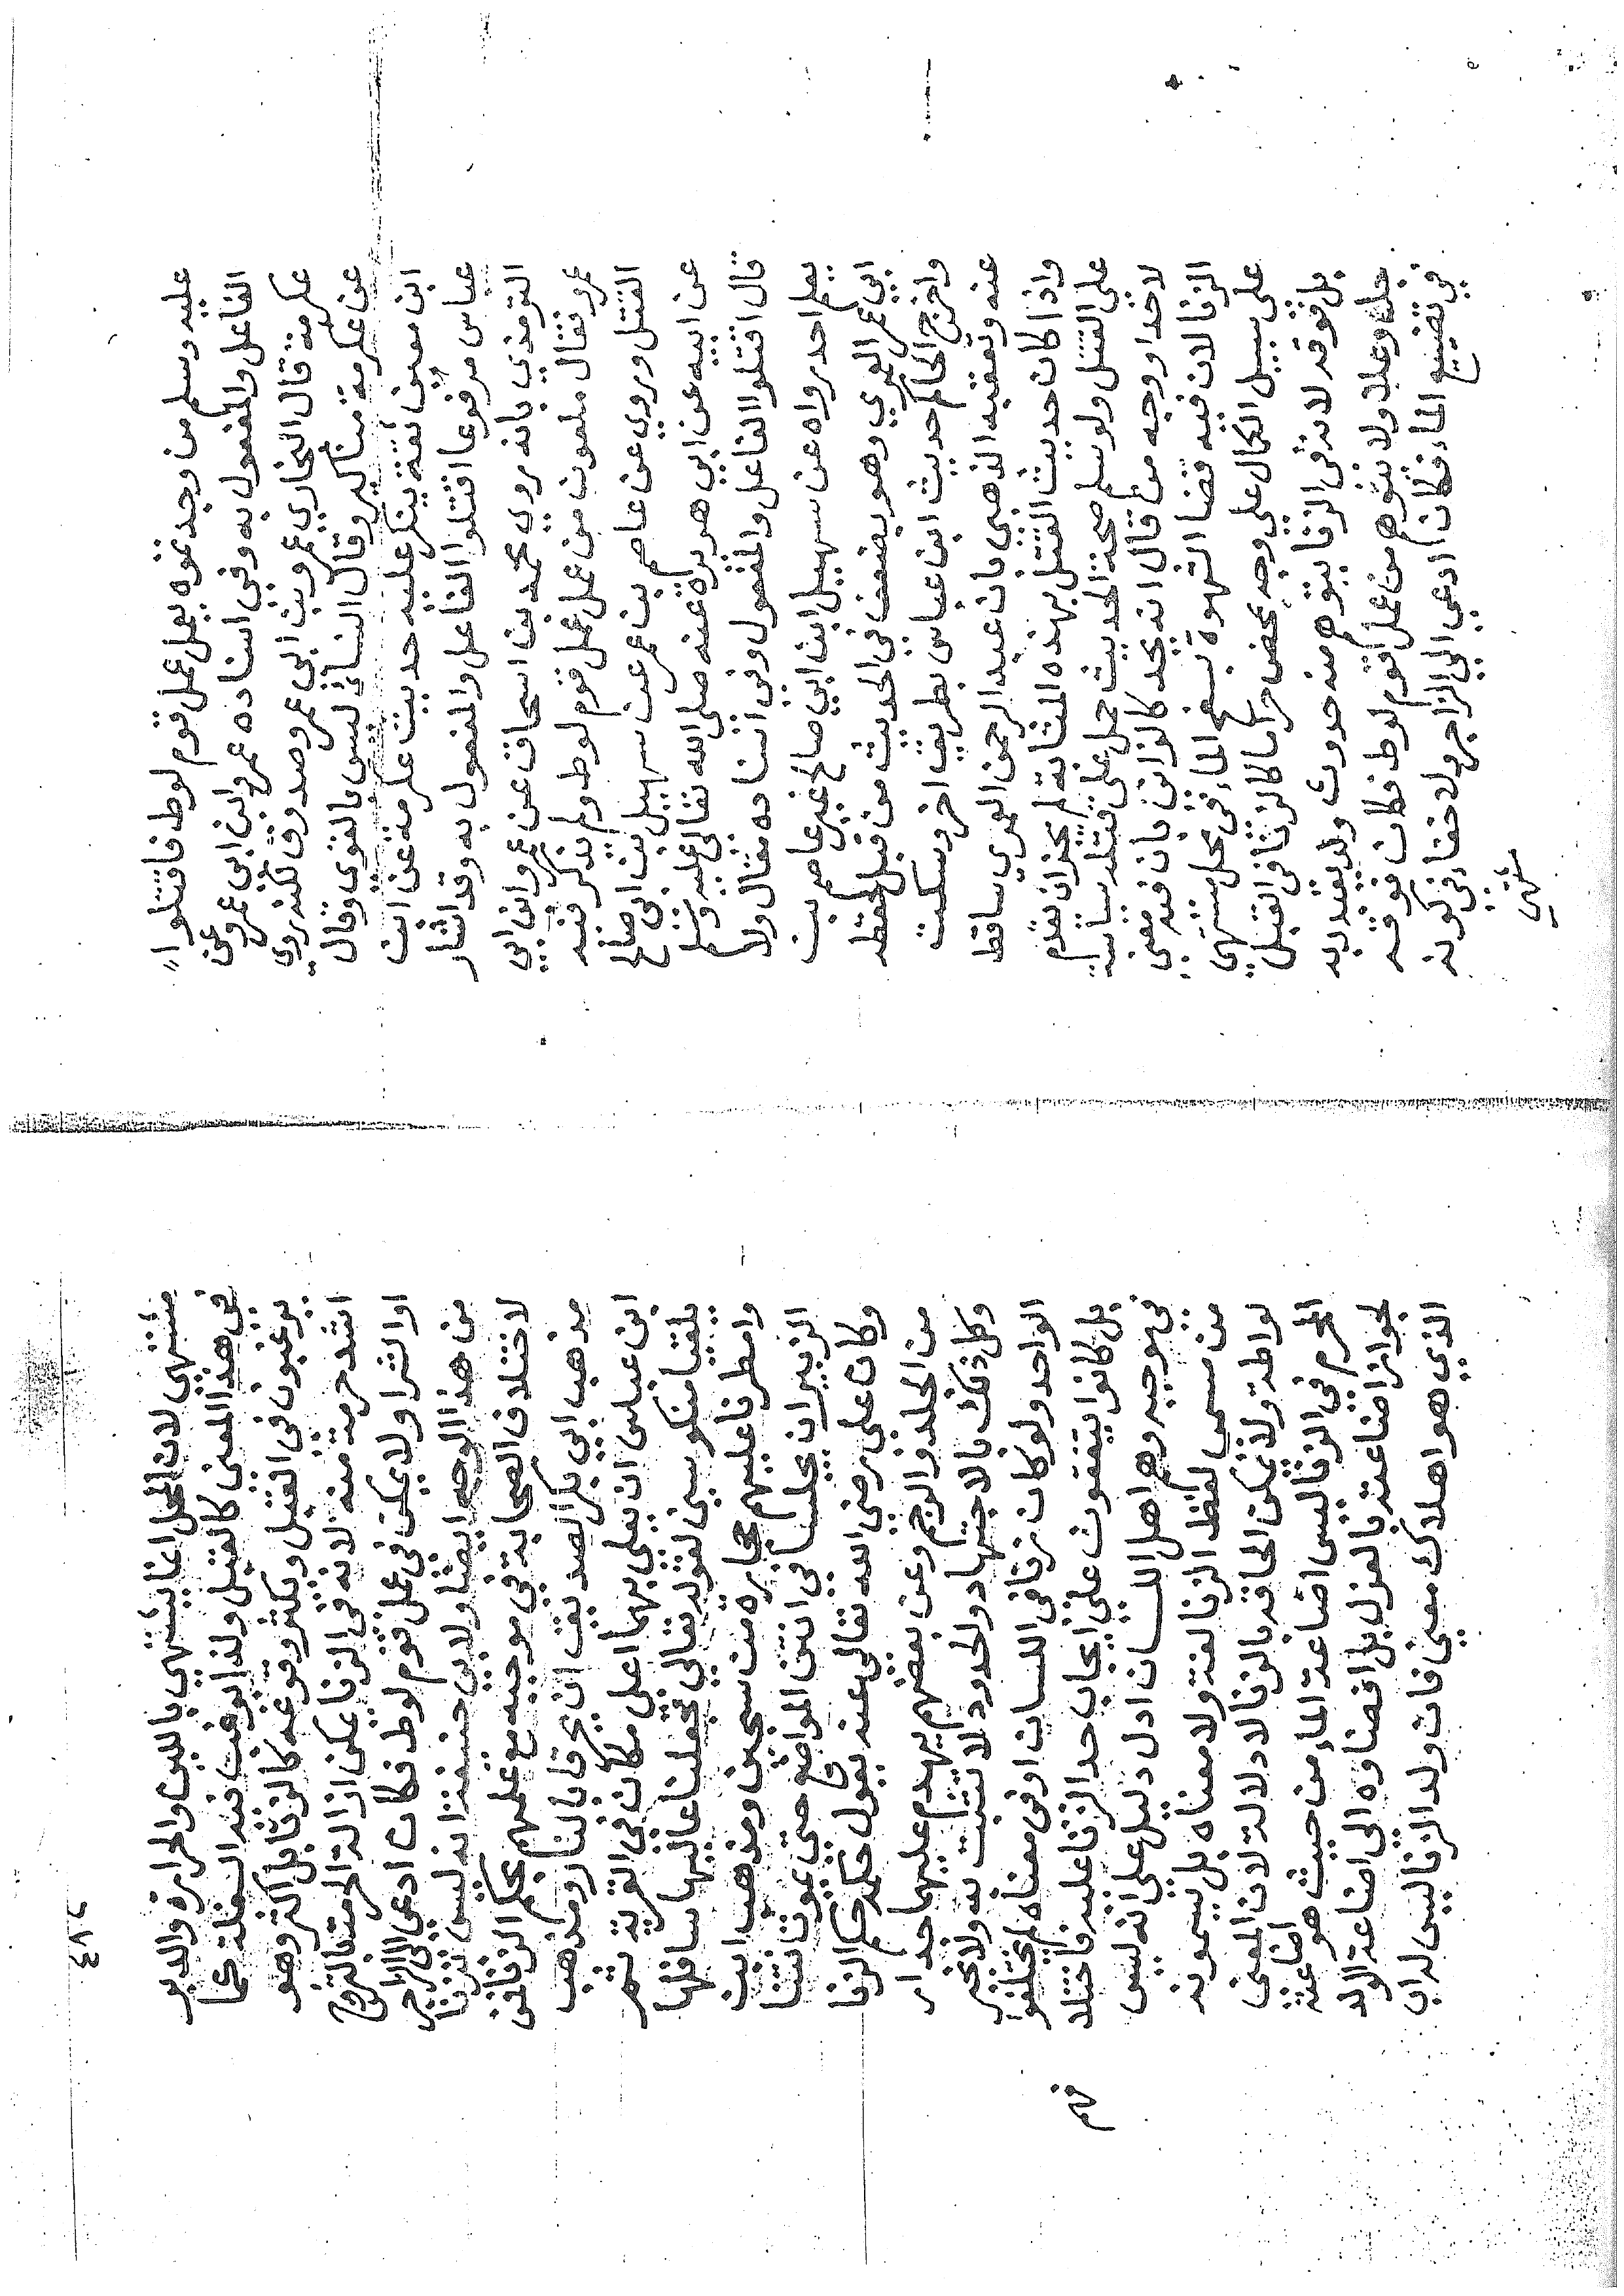 عليه وسلم من وجدتموه يعمل عمل قوم لوط فاقتلوا
الفاعل والمفعول به وفي اسناده عمرو ابن ابي عمرو عن
عكرمة قال البخاري عمرو بن ابي عمرو صدوق لكنه روي
عن عكرمة مناكير وقال النسائي ليس بالقوى وقال
ابن معين ثقة ينكر عليه حديث عكرمة عن ابن
عباس مرفوعا اقتلوا الفاعل والمفعول به وقد اشار
الترمذي بانه روي محمد بن اسحاق عن عمرو ابن ابي
عمرو فقال ملعون من عمل عمل قوم لوط ولم يذكر فيه
القتل وروي عن عاصم بن عمر عن سهيل بن ابي صالح
عن ابيه عن ابي هريرة عنه صلى الله تعالى عليه وسلم
قال اقتلوا الفاعل والمفعول وفي اسناده مقال ولا
يعلم احد رواه عن سهيل ابن ابي صالح غير عاصم بن
ابي عمر العمري وهو يضعف في الحديث من قبل حفظه
واخرج الحاكم حديث ابن عباس بطريق اخر وسكت
عنه وتعقبه الذهبي بان عبد الرحمن العمري ساقط
واذا كان حديث القتل بهذه المثابة لم يجز ان يقدم
على القتل ولو سلم صحة الحديث حمل على قتله سياسة
لا حدا ووجه من قال انه يحد كالزاني بان فيه معنى
الزنا لان فيه قضا الشهوة بسفح الماء في محل مشتهى
على سبيل الكمال على وجه محض حراما كالزنا في القبل
بل فوقه لان في الزنا يتوهم منه حدوث ولد يعبد ربه
جل وعلا ولا يتوهم من عمل قوم لوط فكان فوقه
في تضييع الماء فكان ادعي الى الزاجر ولا خفاء في كونه
مشتهى
٤٨٢
مشتهى لان المحل انما يشتهي باللين والحرارة والدبر
في هذا المعنى كالقبل ولذا يرغب فيه السفلة كما
يرغبون في القبل ويكثر وقوعه كالزنا بل اكثر وهو
اشد حرمة منه لانه في الزنا يمكن ازالة الحرمة بالتزوج
او الشرا ولا يمكن في عمل قوم لوط فكان ادعى الى الزاجر
من هذا الوجه ايضا ولابي حنيفة انه ليس بزنا
لاختلاف الصحابة في موجبه مع علمهم بحكم الزنا فان
مذهب ابي بكر الصديق ان يحرقا بالنار ومذهب
ابن عباس ان يعلى بهما اعلى مكان في القرية ثم
يلقيا منكوسين لقوله تعالى فجعلنا عاليها سافلها
وامطرنا عليهم حجارة من سجيل ومذهب ابن
الزبير ان يحبسا في انتن المواضع حتى يموتا نتنا
وكان علي رضي الله تعالى عنه يقول حكمه حكم الزنا
من الجلد والرجم وعن بعضهم يهدم عليهما جدار
وكل ذلك بالاجتهاد والحدود لا تثبت به ولا بخبر
الواحد ولو كان زنا في اللسان او في معناه لم يختلفوا
بل كانوا يتفقون على ايجاب حد الزنا عليه فاختلافهم
في موجبه وهم اهل اللسان ادل دليل على انه ليس
من مسمى لفظ الزنا لغة ولا معناه بل يسمونه
لواطة ولا يمكن الحاقه بالزنا لا دلالة لان المعنى
المحرم في الزنا ليس اضاعة الماء من حيث هو اضاعة
لجواز اضاعته بالعزل بل افضاؤه الى اضاعة الولد
الذي هو اهلاك معنى فان ولد الزنا ليس له اب